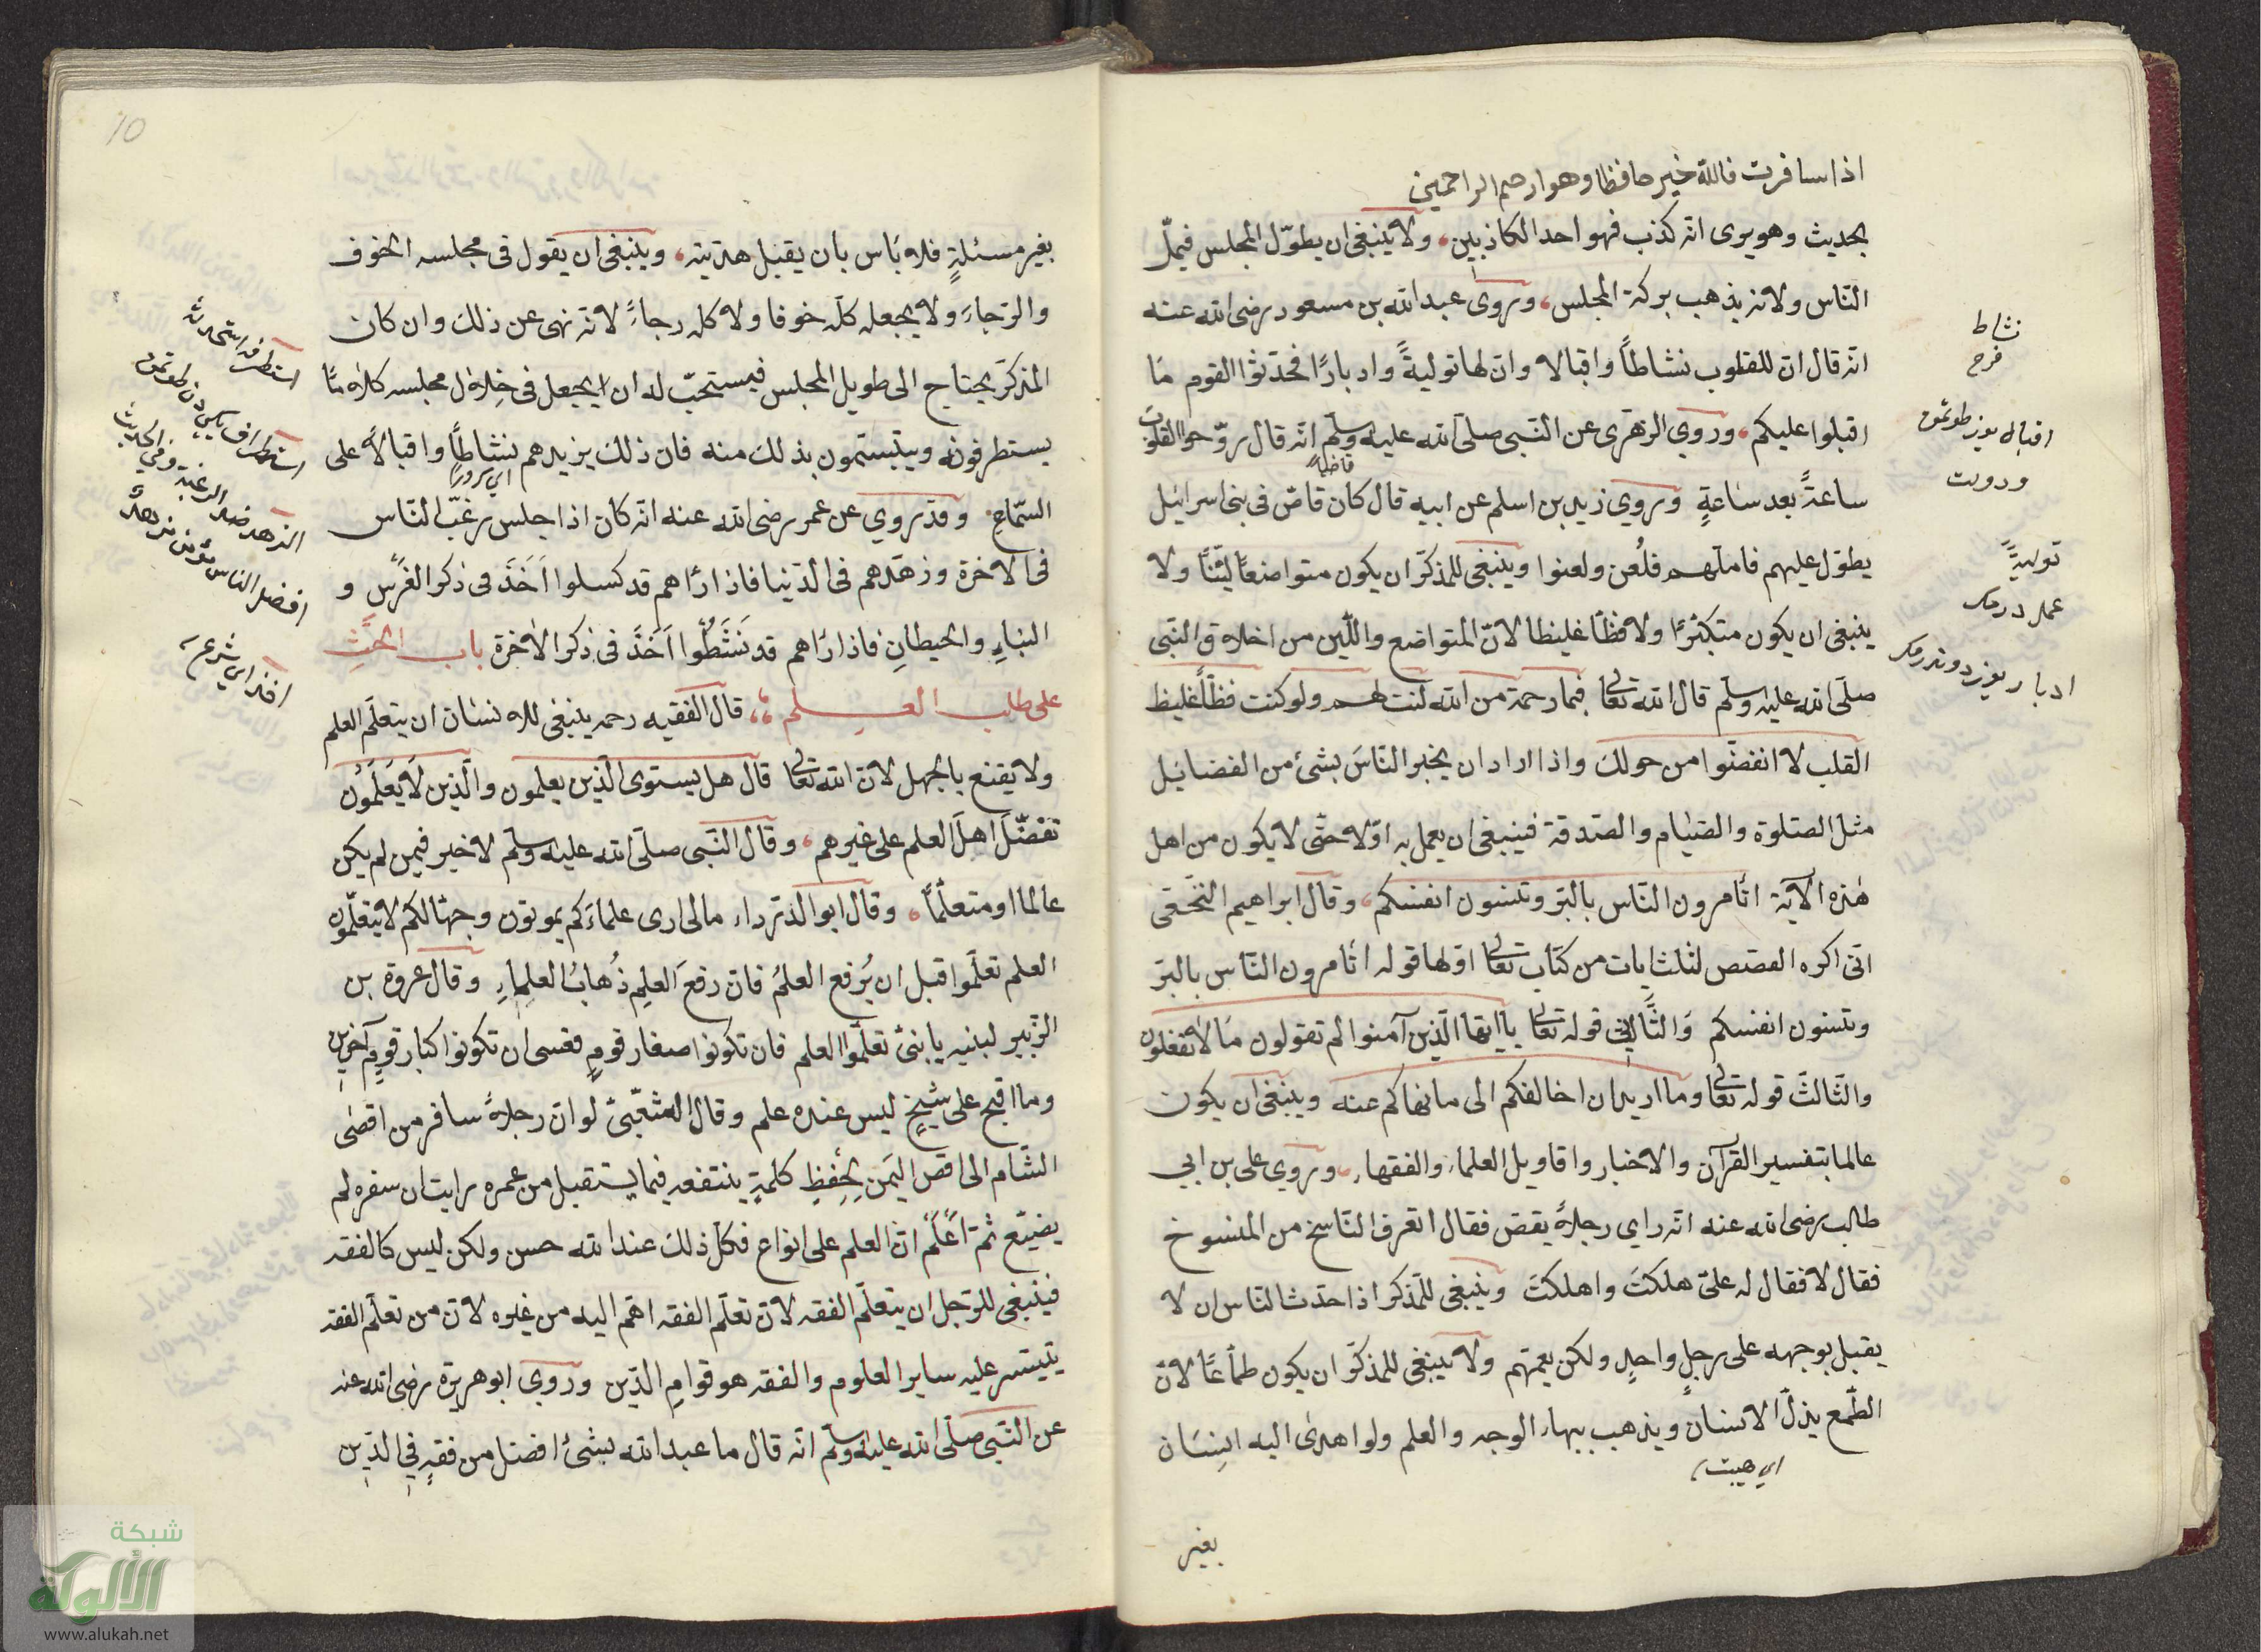 اذا سافرت فالله خير حافظا وهو ارحم الراحمين
بحديث وهو يرى انه كذب فهو احد الكاذبين ولا ينبغى ان يطوّل المجلس فيملّ
النّاس ولانه يذهب بركة المجلس وروى عبد الله بن مسعود رضى الله عنه
انّه قال انّ للقلوب نشاطاً واقبالا وانّ لها توليةً وادبارًا فحدّثوا القوم ما
اقبلوا عليكم وروي الزهرى عن النّبى صلّى الله عليه وسلّم انّه قال روّحوا القلوب
ساعةً بعد ساعةٍ وروي زيد بن اسلم عن ابيه قال كان قاصّ فى بنى اسرائيل
يطوّل عليهم فاملّهم فلُعن ولعنوا وينبغى للمذكّر ان يكون متواضعًا ليّنًا ولا
ينبغى ان يكون متكبّرًا ولا فظّا غليظا لانّ المتواضع واللّين من اخلاق النّبى
صلّى الله عليه وسلّم قال الله تعالى فبما رحمة من الله لنت لهم ولو كنت فظّاً غليظ
القلب لا انفضّوا من حولك واذا اراد ان يخبر النّاسَ بشئ من الفضائيل
مثل الصّلوة والصّيام والصّدقة فينبغى ان يعمل به اوّلا حتّى لا يكون من اهل
هٰذه الآية اتأمرون النّاس بالبرّ وتنسون انفسكم وقال ابراهيم النّخعى
انّى اكره القصص لثلث ايات من كتاب تعالى اوّلها قوله اتأمرون النّاس بالبرّ
وتنسون انفسكم وَالثَّانِى قوله تعالى ياايّها الّذين آمنوا لم تقولون مَا لا تفعلون
والثّالثَ قوله تعالى وما اريد ان اخالفكم الى ما نهاكم عنه وينبغى ان يكون
عالما بتفسير القرآن والاخبار واقاويل العلماء والفقهاء وروي على بن ابي
طالب رضى الله عنه انّه راي رجلاً يقصّ فقال اتعرف النّاسخ من المنسوخ
فقال لا فقال له علىّ هلكتَ واهلكتَ وينبغى للمذكر اذا حدّث النّاس ان لا
يقبل بوجهه على رجلٍ واحدٍ ولكن يعمّهم ولا ينبغى للمذكّر ان يكون طمّاعًا لانّ
الطّمع يذلّ الانسان ويذهب ببهاء الوجه والعلم ولو اهدى اليه انسان
اي هيبت
بغير
نشاط
فرح
تولية
بغير مسئلةٍ فلا بأس بان يقبل هديّته وينبغى ان يقول فى مجلسه الخوف
والرّجاءَ ولا يجعله كلّه خوفا ولا كله رجاءً لانّه نهى عن ذلك وان كان
المذكّر يحتاج الى طويل المجلس فيستحبّ له ان يجعل فى خلال مجلسه كلامًا
يستطرفونه ويتبسّمون بذلك منه فان ذلك يزيدهم نشاطًا واقبالاً على
اي سرورًا
السّماع وقد روي عن عمر رضى الله عنه انّه كان اذا جلس رغّب النّاس
فى الاخرة وزهّدهم فى الدّنيا فاذا رأهم قد كسلوا اَخَذَ فى ذكر الغرس و
البناءِ والحيطانِ فاذا رأهم قد نَشَطُوا اَخَذَ فى ذكر الاخرة باب الحَثِّ
على طلب العلم قال الفقيه رحمه ينبغى للانسان ان يتعلّم العلم
ولا يقنع بالجهل لانّ الله تعالى قال هل يستوى الّذين يعلمون والّذين لَا يَعْلَمُوْن
تفضّلَ اهلَ العلم على غيرهم وقال النّبى صلّى الله عليه وسلّم لا خير فيمن لم يكن
عالما او متعلّمًا وقال ابو الدّرداء مالى ارى علماءَكم يموتون وجهّالكم لا يتعلّمون
العلم تعلّموا قبل ان يُرفع العلمُ فانّ رفعَ العلمِ ذُهابُ العلماءِ وقال عروة بن
الزّبير لبنيه يا بنىّ تعلّموا العلم فان تكونوا صغار قومٍ فعسى ان تكونوا كبار قومٍ آخرين
وما اقبح على شيخٍ ليس عنده علم وقال الشّعبىّ لو انّ رجلاً سافر من اقصى
الشّام الى اقصى اليمن لحفظِ كلمةٍ ينتفعه فيما يستقبل من عمره رايت ان سفره لم
يضيّع ثمّ اعلم انّ العلم على انواع فكلّ ذلك عند الله حسن ولكن ليس كالفقه
فينبغى للرّجل ان يتعلّم الفقه لانّ تعلّم الفقه اهمّ اليه من غيره لانّ من تعلّم الفقه
يتيسّر عليه ساير العلوم والفقه هو قوام الدّين وروي ابو هريرة رضى الله عنه
عن النّبى صلّى الله عليه وسلّم انّه قال ما عبد الله بشئ افضل من فقهٍ فى الدّين
10
شبكة
الألوكة
www.alukah.net